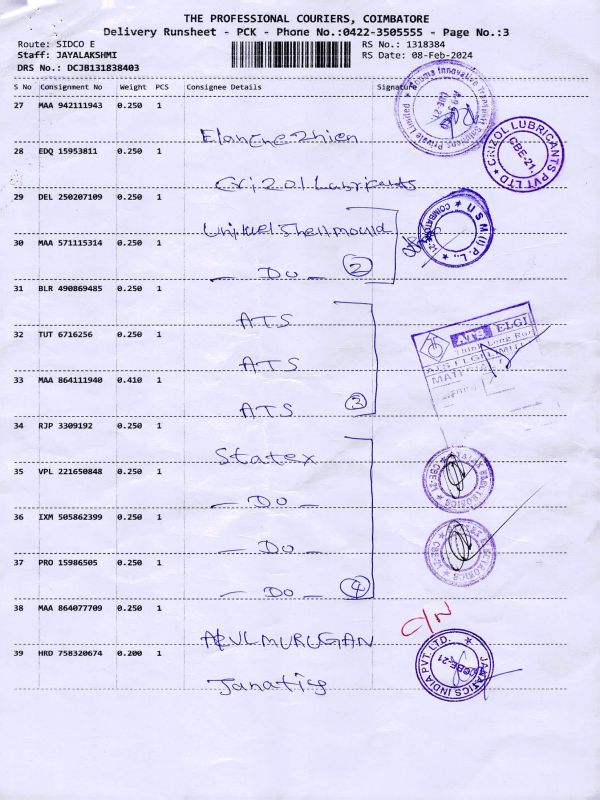 THE PROFESSIONAL COURIERS, COIMBATORE
Delivery Runsheet - PCK - Phone No.:0422-3505555 - Page No.:3
Route: SIDCO E
RS No.: 1318384
Staff: JAYALAKSHMI
RS Date: 08-Feb-2024
DRS No.: DCJB131838403
S No Consignment No Weight PCS Consignee Details Signature
27 MAA 942111943 0.250 1
28 EDQ 15953811 0.250 1
Crizol Lubricants
29 DEL 250207109 0.250 1
Shellmould
30 MAA 571115314 0.250 1
— Do — 2
31 BLR 490869485 0.250 1
ATS
32 TUT 6716256 0.250 1
ATS
33 MAA 864111940 0.410 1
ATS 3
34 RJP 3309192 0.250 1
Statex
35 VPL 221650848 0.250 1
— Do —
36 IXM 505862399 0.250 1
— Do —
37 PRO 15986505 0.250 1
— Do — 4
38 MAA 864077709 0.250 1
ARULMURUGAN
C/N
39 HRD 758320674 0.200 1
Janatics
CRIZOL LUBRICANTS PVT LTD
CBE-21.
U S M (I) P. L.,
ATS ELGI
JANATICS INDIA PVT. LTD.
CBE-21